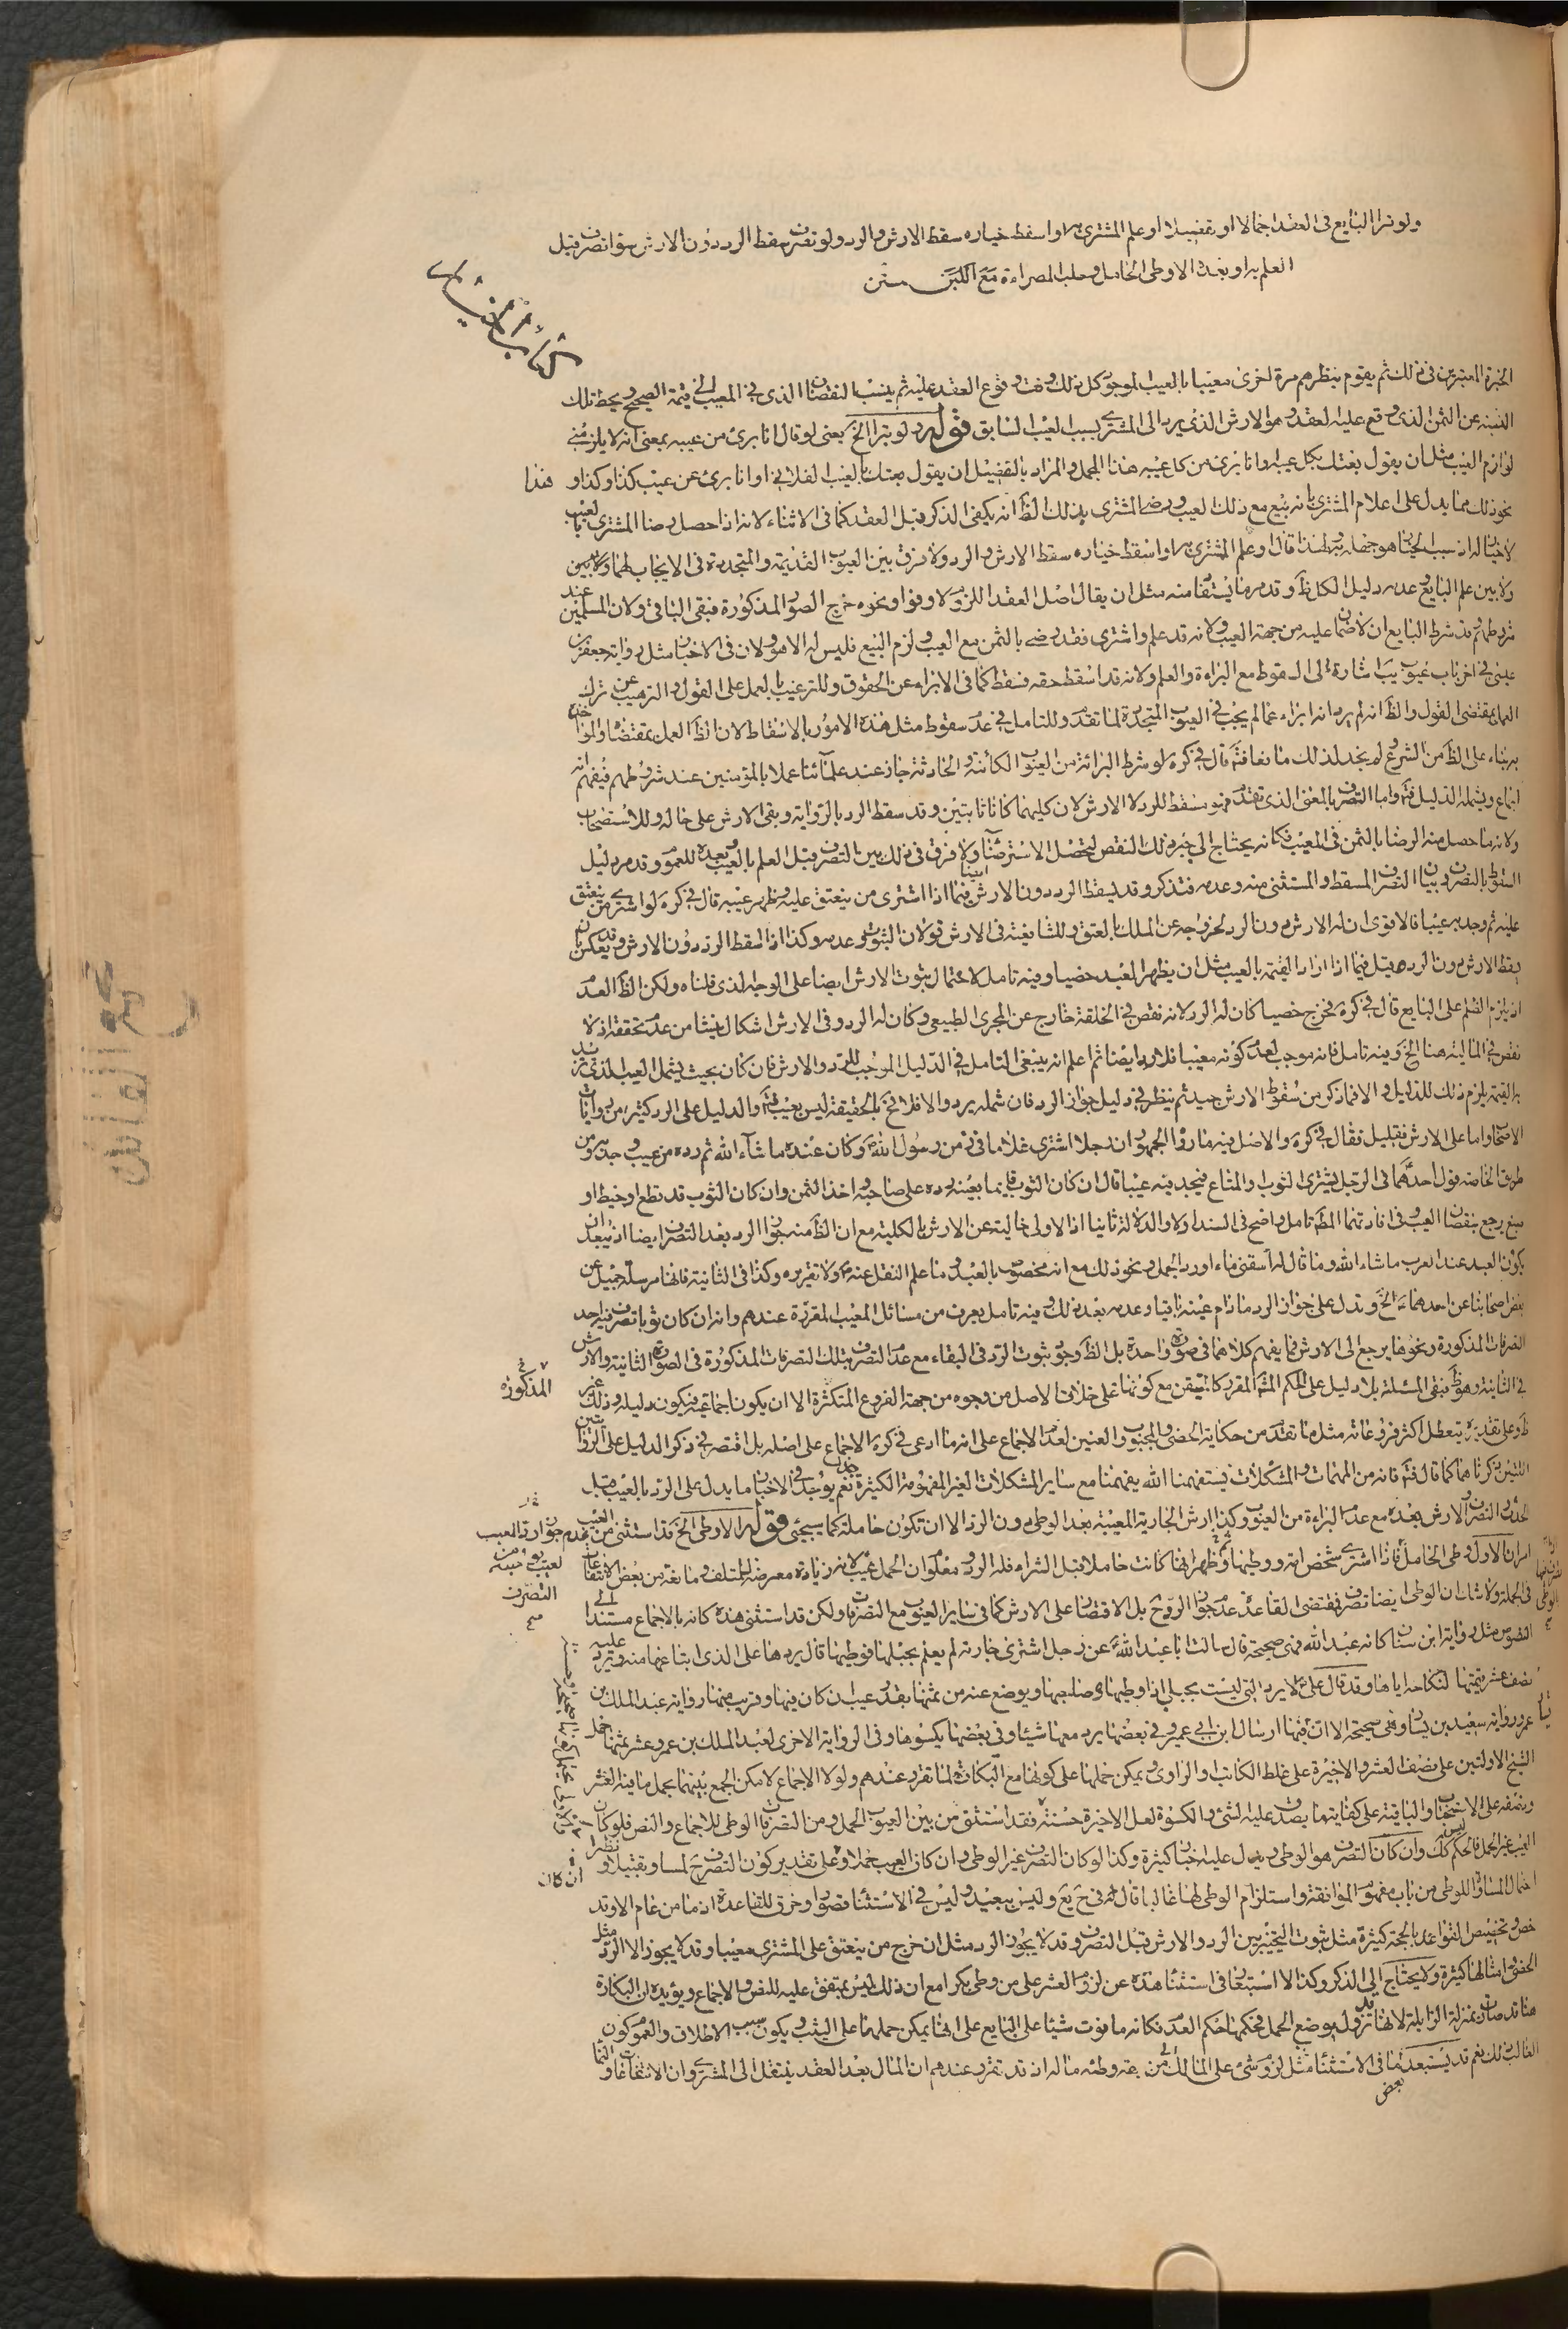 ولو تبرا البايع فى العقد اجمالا او تفصيلا او علم المشترى به او اسقط خياره سقط الارش والرد ولو تصرف سقط الرد دون الارش سواء تصرف قبل
العلم به او بعده الا وطى الحامل وحلب المصراة مع اللبن متن
الخبرة المعتبرين فى ذلك ثم يقوم بنظرهم مرة اخرى معيبا بالعيب الموجود كل ذلك وقت وقوع العقد عليه ثم ينسب النقصان الذى فى المعيب الى قيمة الصحيح ويحط تلك
النسبة عن الثمن الذى وقع عليه العقد وهو الارش الذى يرد الى المشترى بسبب العيب السابق قوله ولو تبرا الخ يعنى لو قال انا برئ من عيبه بمعنى انه لا يلزمنى
لوازم العيب مثل ان يقول بعتك بكل عيب وانا برئ من كل عيبه هذا المجمل والمراد بالتفصيل ان يقول بعتك بالعيب الفلانى او انا برئ عن عيب كذا وكذا و هذا
نحو ذلك مما يدل على اعلام المشترى بانه يبيع مع ذلك العيب ورضى المشترى بذلك الظ انه يكفى الذكر قبل العقد كما فى الاثناء لانه اذا حصل رضا المشترى بالعيب
لا خيار له اذ سبب الخيار هو جهله به ولهذا قال او علم المشترى به او اسقط خياره سقط الارش والرد ولا فرق بين العيوب القديمة والمتجددة فى الايجاب لهما ولا بين
ولا بين علم البايع وعدمه دليل الكل ظ وقد مر ما يستفاد منه مثل ان يقال اصل العقد اللزوم لاوفوا ونحوه خرج الصور المذكورة فبقى الباقى ولان المسلمين عند
شروطهم وقد شرط البايع ان لا ضمان عليه من جهة العيب ولانه قد علم واشترى فقد رضى بالثمن مع العيب ولزم البيع فليس له الا هو ولان فى الاخبار مثل رواية جعفر بن
عيسى فى اخر باب عيوب يب اشارة الى السقوط مع البراءة والعلم ولانه قد اسقط حقه فسقط كما فى الابراء عن الحقوق وللترغيب بالعمل على القول والترهيب عن ترك
العمل بمقتضى القول والظ انه لم يرد انه ابراء عما لم يجب فى العيوب المتجددة لما تقدم وللتامل فى عدم سقوط مثل هذه الامور بالاسقاط لان الظ العمل بمقتضاه والمؤاخذة
به بناء على الظ من الشرع ولم يجد لذلك مانعا فت قال فى كره لو شرط البرائة من العيوب الكائنة والحادثة جاز عند علمائنا عملا بالمؤمنين عند شروطهم فيفهم انه
اجماع ويشمله الدليل فت واما التصرف بالمعنى الذى تقدم فهو مسقط للرد لا الارش لان كليهما كانا ثابتين وقد سقط الرد بالرواية وبقى الارش على حاله وللاستصحاب
ولانه ما حصل منه الرضا بالثمن فى المعيب فكانه يحتاج الى جبر ذلك النقص لتحصل الاسترضاء ولا فرق فى ذلك بين التصرف قبل العلم بالعيب وبعده للعموم وقد مر دليل
السقوط بالتصرف وبيان التصرف المسقط والمستثنى منه وعدمه فتذكر وقد يسقط الرد دون الارش ايضا فيما اذا اشترى من ينعتق عليه وظهر عيبه قال فى كره لو اشترى من ينعتق
عليه ثم وجد به عيبا فالاقوى ان له الارش دون الرد لخروجه عن الملك بالعتق وللشافعية فى الارش قولان الثبوت وعدمه وكذا اذا اسقط الرد دون الارش وقد يمكن ان
يسقط الارش دون الرد قيل فيما اذا ازداد القيمة بالعيب مثل ان يظهر العبد خصيا وفيه تامل لاحتمال ثبوت الارش ايضا على الوجه الذى قلناه ولكن الظ العدم
اذ يلزم الظلم على البايع قال فى كره لو خرج خصيا كان له الرد لانه نقص فى الخلقة خارج عن المجرى الطبيعى وكان له الرد وفى الارش اشكال ينشا من عدم تحققه اذ لا
نقص فى المالية هنا الخ وفيه تامل فانه موجب لعدم كونه معيبا فلا رد ايضا ثم اعلم انه ينبغى التامل فى الدليل الموجب للرد والارش فان كان بحيث يشمل العيب الذى تزيد
به القيمة يلزم ذلك للدليل والا فما ذكر من سقوط الارش جيد ثم ينظر فى دليل جواز الرد فان شمله يرد والا فلا فح بالحقيقة ليس بعيب فت والدليل على الرد كثير من روايات
الاصحاب واما على الارش فقليل فقال فى كره والاصل فيه ما رواه الجمهور ان رجلا اشترى غلاما فى زمن رسول الله ص وكان عنده ما شاء الله ثم رده من عيب وجد به ومن
طريق الخاصة قول احدهما فى الرجل يشترى الثوب او المتاع فيجد فيه عيبا قال ان كان الثوب قايما بعينه رده على صاحبه واخذ الثمن وان كان الثوب قد قطع او خيط او
صبغ يرجع بنقصان العيب وفى افادتهما المط تامل واضح فى السند اولا والدلالة ثانيا اذ الاولى خالية عن الارش بالكلية مع ان الظ منه جواز الرد بعد التصرف ايضا اذ يبعد ان
يكون العبد عند العرب ما شاء الله وما قال له اسقنى ماء او رد الجمل ونحو ذلك مع انه مخصوص بالعبد وما علم النقل عنه ص ولا تقريره وكذا فى الثانية فانها مرسلة جميل عن
بعض اصحابنا عن احدهما ع الخ وتدل على جواز الرد ما دام عينه باقيا وعدمه بعد ذلك وفيه تامل يعرف من مسائل المعيب المقررة عندهم وانه ان كان ثوبا تصرف فيه احد
التصرفات المذكورة ونحوها يرجع الى الارش فما يفهم كلاهما فى صورة واحدة بل الظ وجوب ثبوت الرد فى البقاء مع عدم التصرف بتلك التصرفات المذكورة فى الصورة الثانية والارش
فى الثانية وهو ظ فبقى المسئلة بلا دليل على الحكم المقرر كانه متيقن مع كونها على خلاف الاصل من وجوه من جهة الفروع المتكثرة الا ان يكون اجماعية فيكون دليله وذلك غير
ظ وعلى تقديره يتعطل اكثر فروعاته مثل ما تقدم من حكاية الخصى والمجبوب والعنين لعدم الاجماع على انه ما ادعى فى كره الاجماع على اصله بل اقتصر فى ذكر الدليل على الروايتين
اللتين ذكرناهما كما قال فت فانه من المهمات والمشكلات نستفهمنا الله بفهمنا مع ساير المشكلات الغير المفهومة الكثيرة نعم يوجد فى الاخبار ما يدل على الرد بالعيب قبل
الحدث والتصرف والارش بعده مع عدم البراءة من العيوب وكذا ارش الجارية المعيبة بعد الوطى دون الرد الا ان تكون حاملة كما سيجئ قوله الا وطى الخ قد استثنى من عدم جواز رد العيب
امران الاول وطى الحامل فاذا اشترى شخص امة ووطيها ثم ظهر انها كانت حاملا قبل الشراء فله الرد ومعلوم ان الحمل عيب لانه زيادة معرضة للتلف ومانعة من بعض الانتفاعات
فى الجملة ولا شك ان الوطى ايضا تصرف فمقتضى القاعدة عدم جواز الرد ح بل الاقتصار على الارش كما فى ساير العيوب مع التصرف ولكن قد استثنى هذه كانه بالاجماع مستندا الى
النصوص مثل رواية ابن سنان كانه عبد الله فهى صحيحة قال سالت ابا عبد الله ع عن رجل اشترى جارية لم يعلم بحبلها فوطيها قال يردها على الذى ابتاعها منه ويرد عليه
نصف عشر قيمتها لنكاحه اياها وقد قال على ع لا يرد التى ليست بحبلى اذا وطيها صاحبها ويوضع عنه من ثمنها بقدر عيب ان كان فيها وقريب منها رواية عبد الملك بن
عمرو ورواية سعيد بن يسار وهى صحيحة الا ان فيها ارسال ابن ابى عمير وفى بعضها يرد معها شيئا وفى بعضها يكسوها وفى الرواية الاخرى لعبد الملك بن عمرو عشر ثمنها حمل
الشيخ الاولتين على نصف العشر والاخيرة على غلط الكاتب او الراوى ويمكن حملها على كونها مع البكارة لما تقرر عندهم ولولا الاجماع لامكن الجمع بينهما بحمل ما فيه العشر
ونصفه على الاستحباب والباقية على كفايتها يصدق عليه الشئ والكسوة لعل الاخيرة حسنة فقد استثنى من بين العيوب الحمل ومن التصرف الوطى للاجماع والنص فلو كان
العيب غير الحمل فالحكم ليس كك وان كان التصرف هو الوطى ويدل عليه اخبار كثيرة وكذا لو كان التصرف غير الوطى وان كان العيب حملا وعلى تقدير كون التصرف لمسا وتقبيلا و نظرا
احتمال المساواة للوطى من باب مفهوم الموافقة واستلزام الوطى لها غالبا قال فى ح يع وليس ببعيد وليس فى الاستثناء قصور وخرق للقاعدة اذ ما من عام الا وقد
خص وتخصيص القواعد بالحجة كثيرة مثل ثبوت التخيير بين الرد والارش قبل التصرف وقد لا يجوز الرد مثل ان خرج من ينعتق على المشترى معيبا وقد لا يجوز الا الرد مثل
الخصى وامثالها كثيرة ولا يحتاج الى الذكر وكذا لا استبعاد فى استثناء هذه عن لزوم العشر على من وطى بكرا مع ان ذلك ليس بمتفق عليه للنص والاجماع ويؤيده ان البكارة
هنا قد صارت بمنزلة الزايلة لانها قد تزول بوضع الحمل فحكمها حكم العدم فكانه ما فوت شيئا على البايع على انها يمكن حملها على الثيب ويكون سبب الاطلاق والعموم كون
الغالب ذلك نعم قد يستبعد هنا فى الاستثناء مثل لزوم شئ على المالك من جهة وطئه ماله اذ قد تقرر عندهم ان المال بعد العقد ينتقل الى المشترى وان الانتفاعات و النما
بعض
المذكورة
التصرف
ان كان